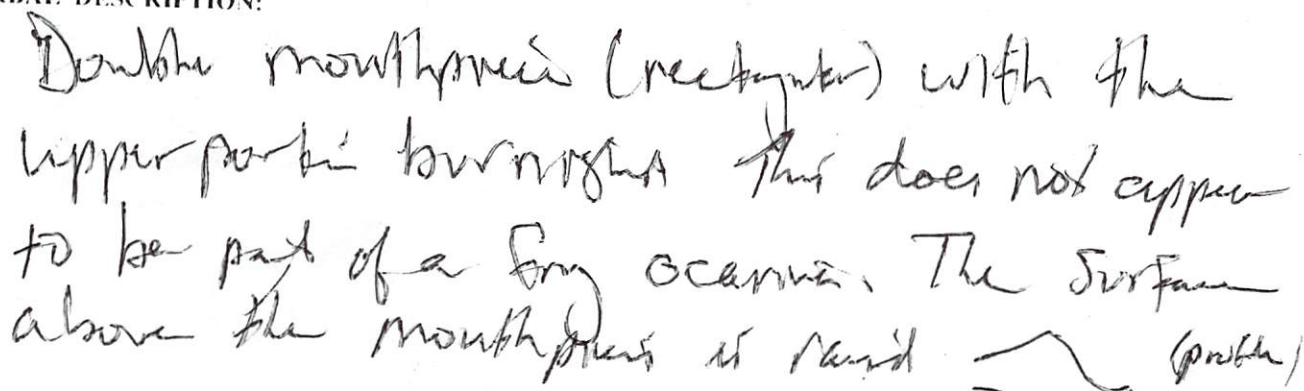 VERBAL DESCRIPTION:
Double mouthpiece (rectangular) with the
upper portion burnished This does not appear
to be part of a frog ocarina. The surface
above the mouthpiece is raised (profile)